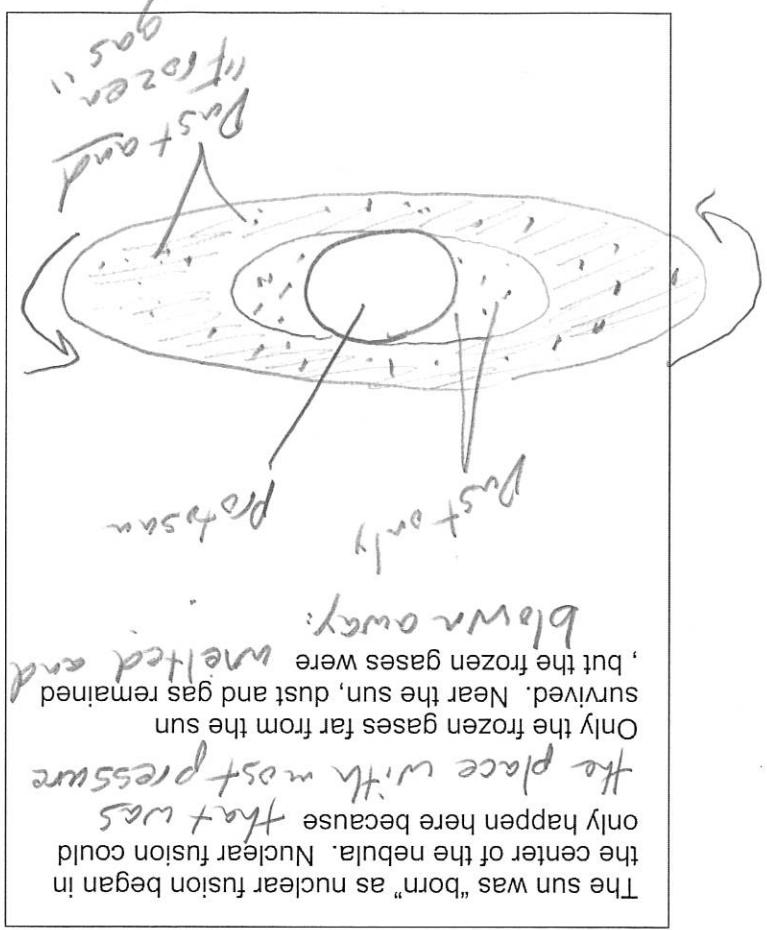 The sun was "born" as nuclear fusion began in
the center of the nebula. Nuclear fusion could
only happen here because that was
the place with most pressure
Only the frozen gases far from the sun
survived. Near the sun, dust and gas remained
, but the frozen gases were melted and
blown away.
Dust only
Protosun
Dust and
"Frozen"
gas